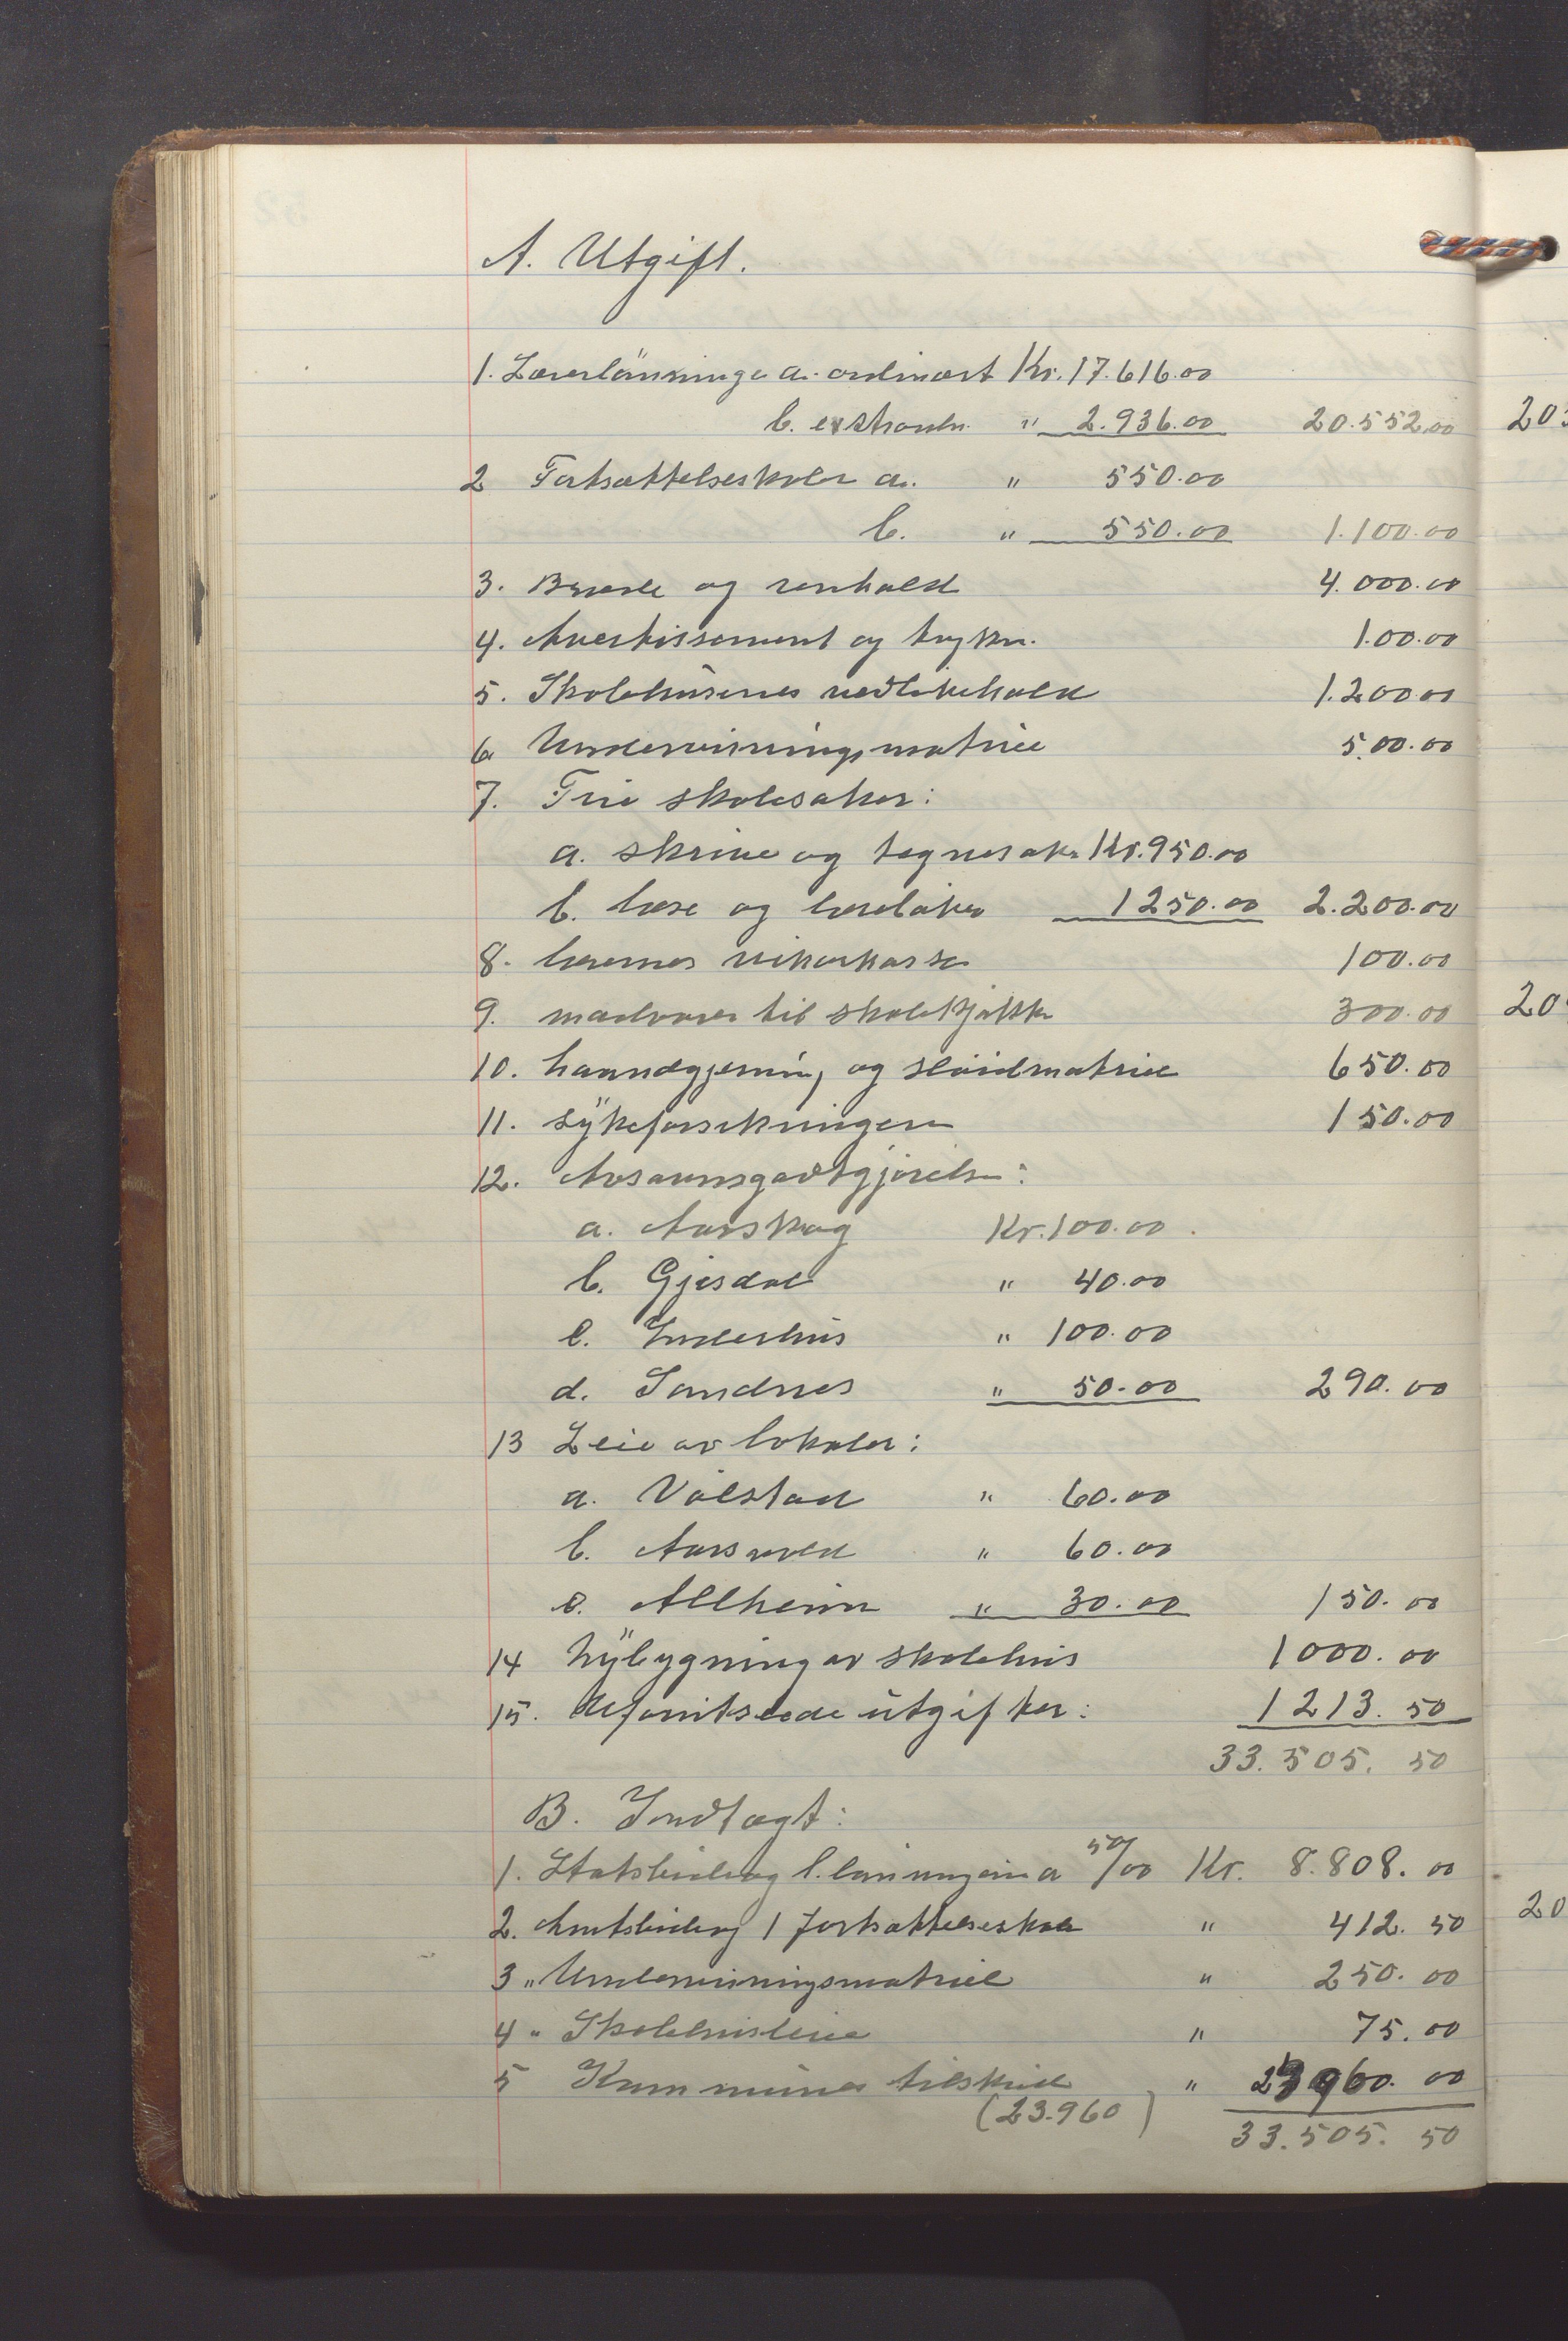 A. Utgift.
1. Lærerlönninger a. ordinært Kr. 17.616.00
b. extraordn. " 2.936.00 20.552.00
2 Fortsættelseskoler a. " 550.00
b. " 550.00 1.100.00
3. Brænsle og renhold 4.000.00
4. Avertissement og trykn. 1.00.00
5. Skolehusenes vedlikehold 1.200.00
6 Undervisningsmatriel 5.00.00
7. Frie skolesaker:
a. skrive og tegnesaker Kr. 950.00
b. læse og lærebøker 1250.00 2.200.00
8. lærernes vikarkasse 100.00
9. madvarer til skolekjøkken 300.00
10. haandgjerning og slöidmatriel 650.00
11. sykeforsikringen 150.00
12. Avsavnsgodtgjörelse:
a. Aarskog Kr. 100.00
b. Gjesdal " 40.00
c. Inderhus " 100.00
d. Sandnes " 50.00 290.00
13 Leie av lokaler:
a. Vølstad " 60.00
b. Aarsvold " 60.00
c. Allheim " 30.00 150.00
14 Nybygning av skolehus 1000.00
15. uforutseede utgifter: 1213.50
33.505.50
B. Indtægt:
1. Statsbidrag t. lønningene a 50/00 Kr. 8.808.00
2. Amtsbidrag t fortsættelseskole " 412.50
3 " Undervisningsmatriel " 250.00
4 " Skolehusleie " 75.00
5 Kommunes tilskud " 23960.00
(23.960)
33.505.50